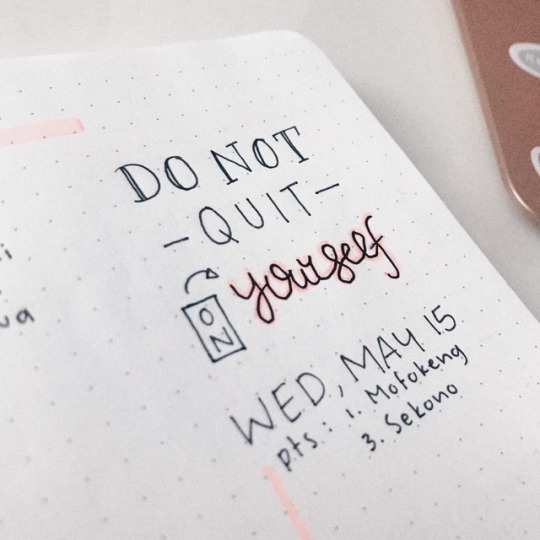 DO NOT
-QUIT-
ON yourself
WED, MAY 15
pts.: 1. Mofokeng
3. Sekono